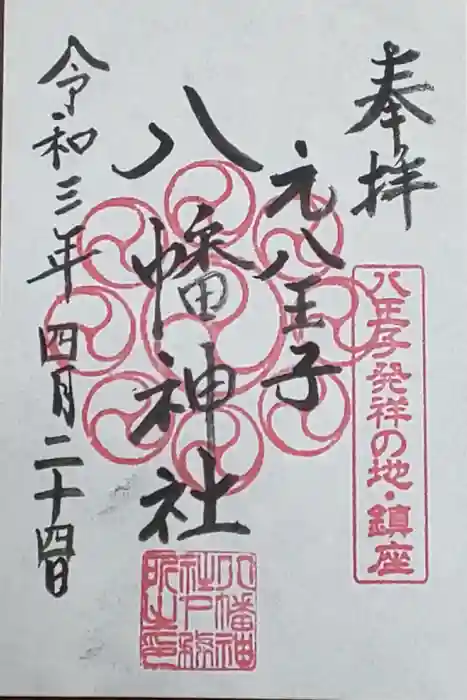 奉拝
八王子発祥の地・鎮座
元八王子
八幡神社
令和三年四月二十四日
八幡神
社戸務